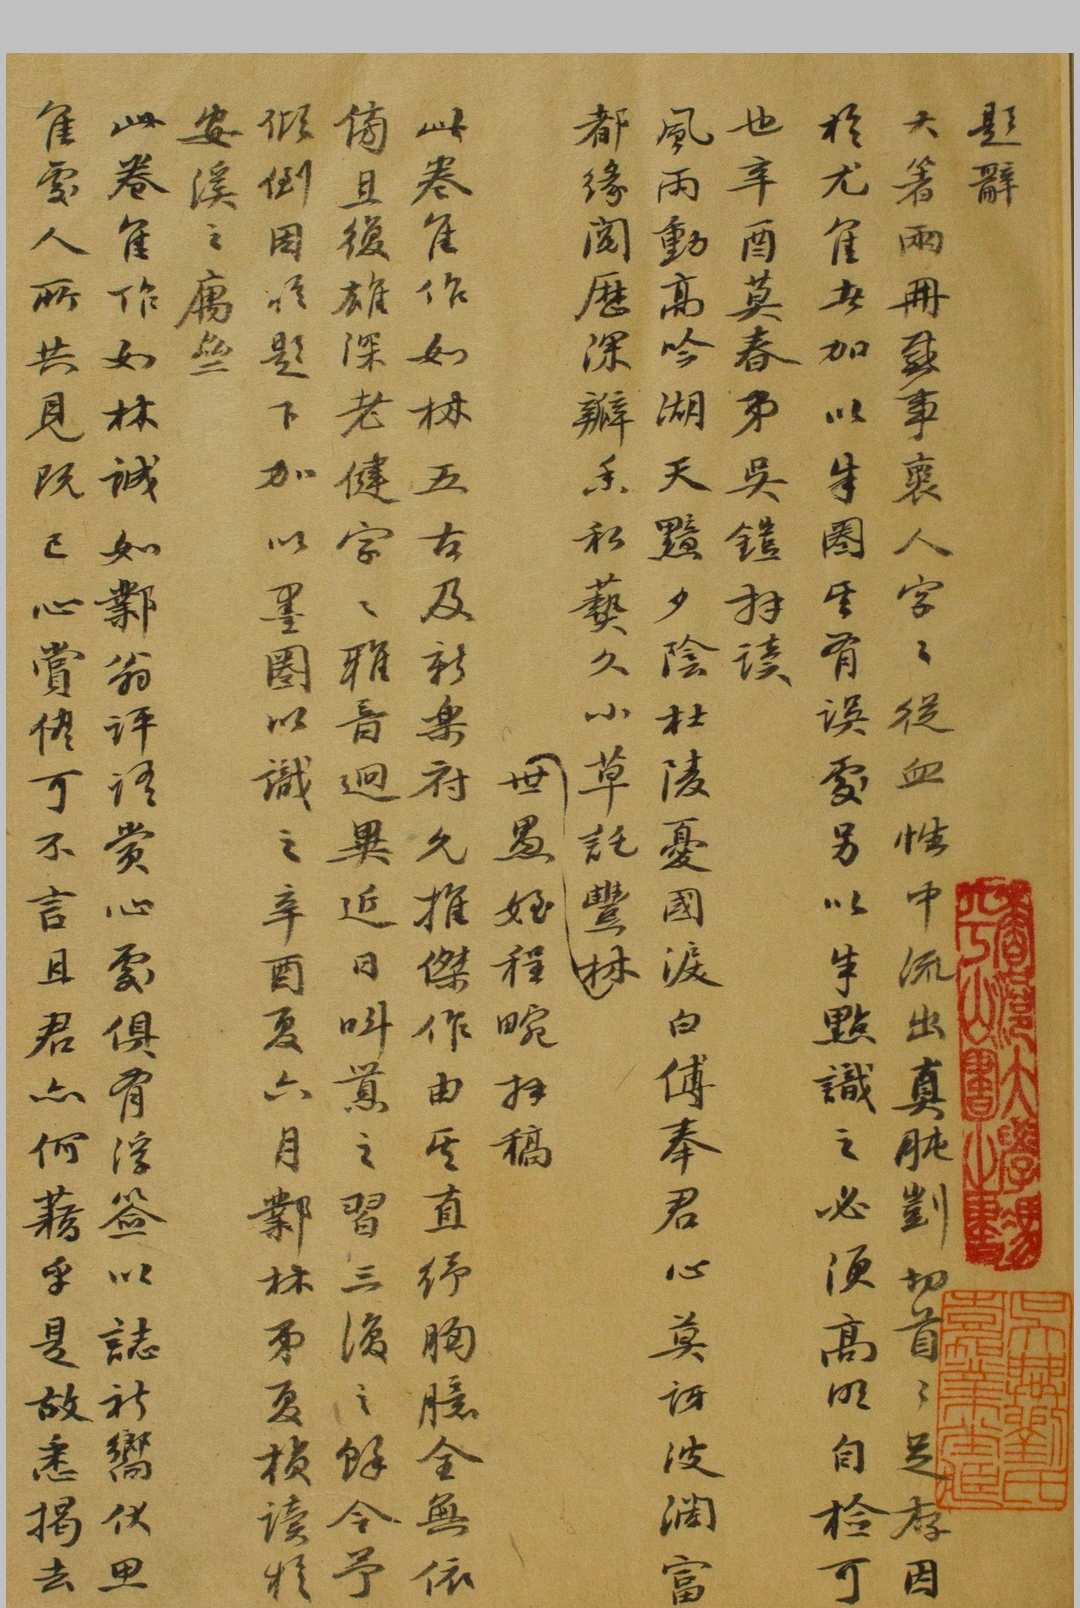 題辭
大著兩冊感事褱人字〻從血性中流出真肫剴切首〻足存因
於尤佳者加以朱圈其有誤處另以朱點識之必須高明自檢可
也辛酉莫春弟吳鎧拜讀
風雨動高吟湖天黯夕陰杜陵憂國淚白傅奉君心莫訝波瀾富
都緣閱歷深瓣香私爇久小草託豐林
世愚姪程畹拜稿
此卷佳作如林五古及新樂府允推傑作由其直紓胸臆全無依
傍且復雄深老健字〻雅音迥異近日叫囂之習三復之餘令予
傾倒因於題下加以墨圈以識之辛酉夏六月鄴林弟夏楨讀於
安溪之寓齋
此卷佳作如林誠如鄴翁評語賞心處俱有浮簽以誌新嚮伏思
佳處人所共見既已心賞僅可不言且君亦何藉乎是故悉揭去
香港大學馮平山圖書館藏書
吳興劉氏嘉業堂藏